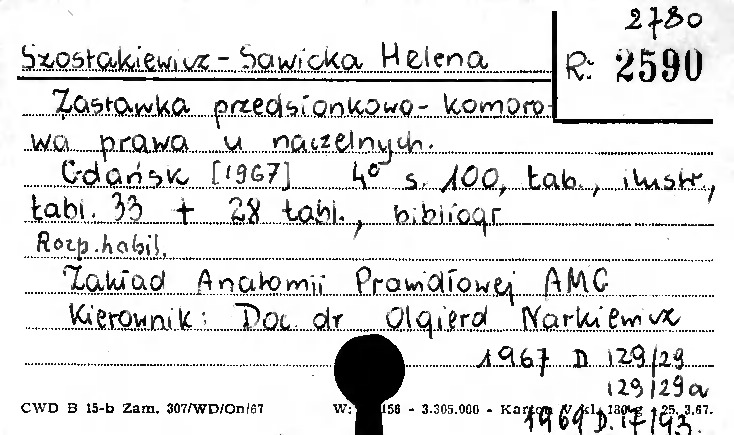 2780
Szostakiewicz-Sawicka Helena
R: 2590
Zastawka przedsionkowo-komoro-
wa prawa u naczelnych.
Gdańsk [1967] 4° s. 100, tab., ilustr.,
tabl. 33 + 28 tabl., bibliogr
Rozp. habil.
Zakład Anatomii Prawidłowej AMG
Kierownik: Doc. dr Olgierd Narkiewicz
1967 D 129/29
129/29a
CWD B 15-b Zam. 307/WD/On/67 W: 156 - 3.305.000 - Karton V kl. 180 g - 25.3.67.
1969 D. 17/93.